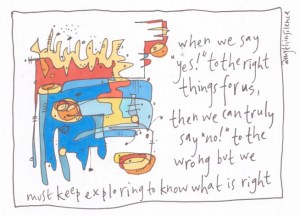 when we say
"yes!" to the right
things for us,
then we can truly
say "no!" to the
wrong but we
must keep exploring to know what is right